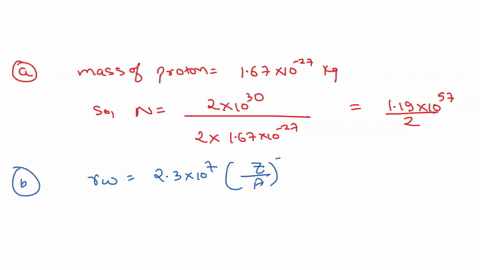 (a) mass of proton = 1.67 × 10^-27 kg
So, N = 2 × 10^30 / 2 × 1.67 × 10^-27 = 1.19 × 10^57 / 2
(b) rw = 2.3 × 10^7 (Z/A)^-